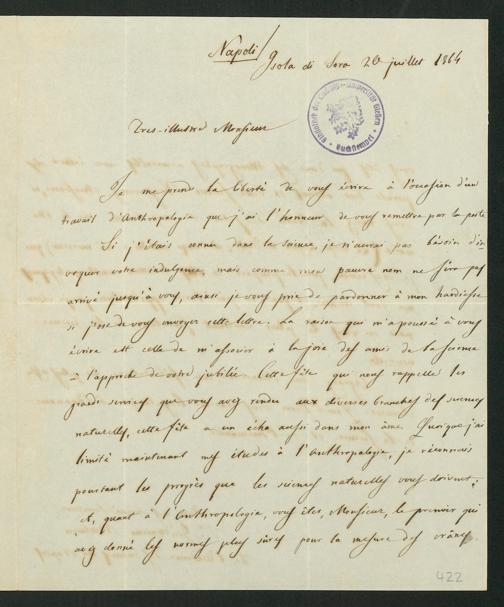 Napoli/
Isola di Sora 26 juillet 1864
Tres-illustre Monsieur
Je me prend la liberté de vous écrire à l'occasion d'un
travail d'Anthropologie que j'ai l'honneur de vous remettre par la poste
Si j'étais connu dans la science, je n'aurai pas bésoin d'in-
voquer votre indulgence, mais comme mon pauvre nom ne sera pas
arrivé jusqu'à vous, ainsi je vous prie de pardonner à mon hardiesse
si j'ose de vous envoyer cette lettre. La raison qui m'a poussé à vous
écrire est celle de m'associer à la joie des amis de la science
à l'approche de votre jubilé. Cette fête qui nous rappelle les
grands services que vous avez rendu aux diverses branches des sciences
naturelles, cette fête a un écho aussi dans mon âme. Quoique j'ai
limité maintenant mes études à l'Anthropologie, je réconnais
pourtant les progrès que les sciences naturelles vous doivent;
et, quant à l'Anthropologie, vous êtes, Monsieur, le premier qui
avez donné les normes plus sûres pour la mesure des crânes.
422